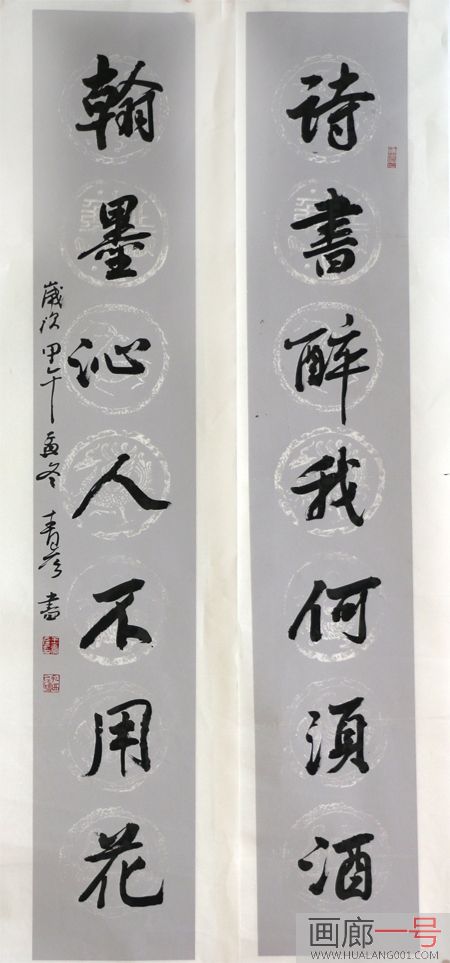 詩書醉我何須酒
翰墨沁人不用花
歲次甲午孟冬 青彦書
画廊一号
WWW.HUALANG001.COM